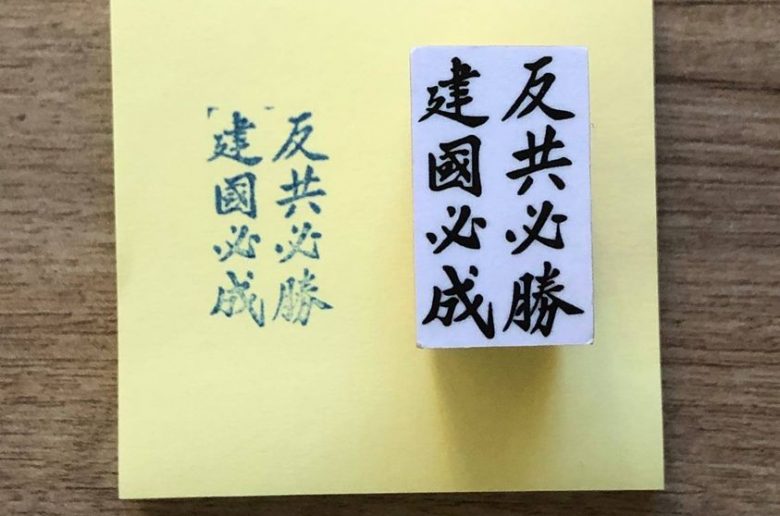 反共必勝
建國必成
反共必勝
建國必成